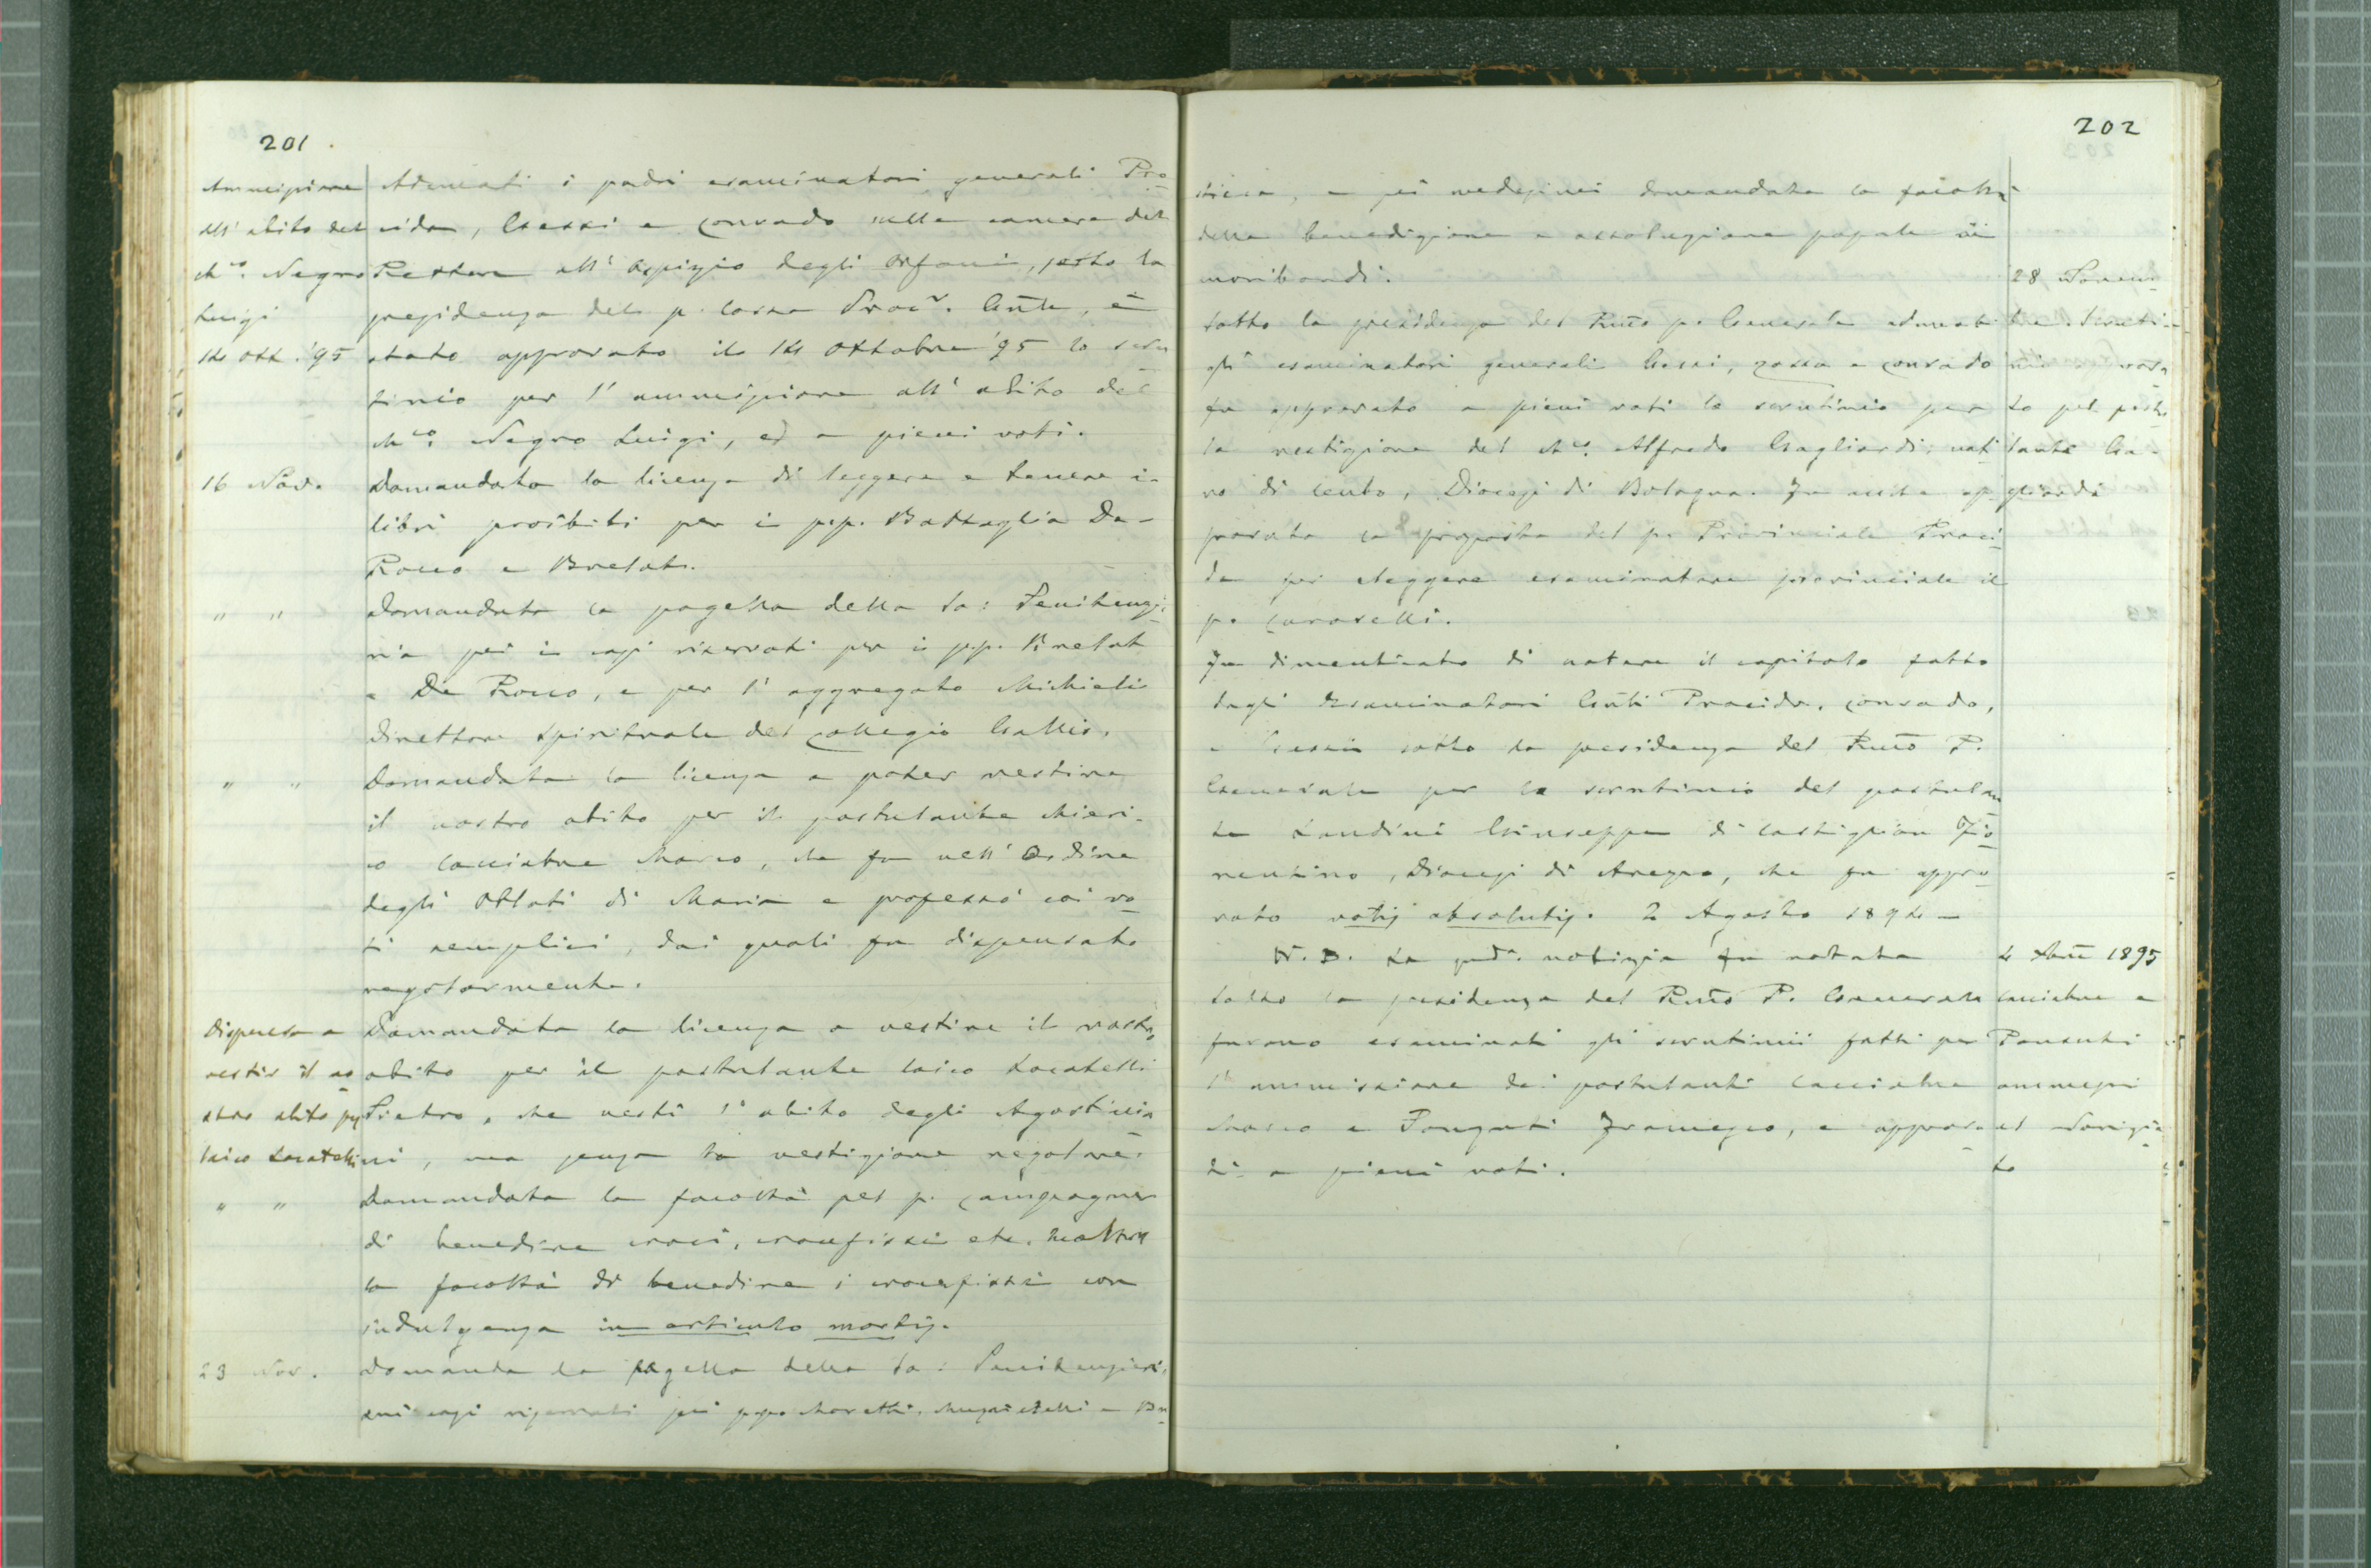 201
Ammissione
all' abito del
Ch.co Negro
Luigi
14 Ott. '95
Adunati i padri esaminatori generali Pro
cida, Gessi e Conrado nella camera del
Rettore all' Ospizio degli Orfani, sotto la
presidenza del p. Cossa Proc.r Gñle, è
stato approvato il 14 Ottobre '95 lo scru
tinio per l' ammissione all' abito del
Ch.co Negro Luigi, ed a pieni voti.
16 Nov.
Domandata la licenza di leggere e tenere i
libri proibiti per i p.p. Battaglia De
Rocco e Brelat.
" "
Domandata la pagella della Sa: Penitenzi
ria pei i casi riservati per i p.p. Brelat
e De Rocco, e per l' aggregato Michieli
Direttore Spirituale del Collegio Gallio.
" "
Domandata la licenza a poter vestire
il nostro abito per il postulante chieri-
co Cacciatore Marco, che fu nell' Ordine
degli Oblati di Maria e professò coi vo
ti semplici, dai quali fu dispensato
regolarmente.
Dispensa a
vestir il no
stro abito pel
laico Locatelli
Domandata la licenza a vestire il nostro
abito per il postulante laico Locatelli
Pietro, che vestì l' abito degli Agostinia
ni, ma senza la vestizione regolare.
" "
Domandata la facoltà pel p. Campagner
di benedire croci, crocefissi etc.
la facoltà di benedire i crocefissi con
indulgenza in articulo mortis.
23 Nov.
Domanda la pagella della Sa: Penitenzieri
sui casi riservati pei p.p. Moretti, e Bu
202
e pei medesimi domandata la facoltà
della benedizione e assoluzione papale ai
moribondi.
28 Novem
bre. Scruti-
nio vota
to pel postu
lante Ga-
gliardi
Sotto la presidenza del Rmõ p. Generale adunati
gli esaminatori generali Gessi, Cossa e Conrado
fu approvato a pieni voti lo scrutinio per
la vestizione del Ch.co Alfredo Gagliardi, nati
vo di Cento, Diocesi di Bologna. Fu anche ap
provata la proposta del p. Provinciale Proci
da per eleggere esaminatore provinciale il
p. Caroselli.
Fu dimenticato di notare il capitolo fatto
dagli Esaminatori Gñli Procida, Conrado,
e Gessi sotto la presidenza del Rmõ P.
Generale per lo scrutinio del postulan
te Landini Giuseppe di Castiglion Fio
rentino, Diocesi di Arezzo, che fu appro
vato votis absolutis. 2 Agosto 1894 —
N. B. La notizia fu notata
4 1895
Cacciatore e
Pansuti
ammessi
al Novizia
to
Sotto la presidenza del Rmõ P. Generale
furono esaminati gli scrutinii fatti per
l' ammissione dei postulanti Cacciatore
Marco e Francesco, e approva
ti a pieni voti.